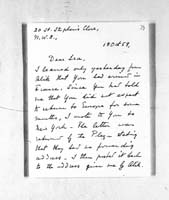 20 St. Stephen's Close,
N.W.8,
18 Oct 59,
Dear Lea,
I learned only yesterday from
that you had arrived in
France. Since you had told
me that you did not expect
to return to Europe for some
months, I wrote to you to
New York. The letter was
returned by the Plaza stating
that they had no forwarding
address. I then posted it back
to the address given me by